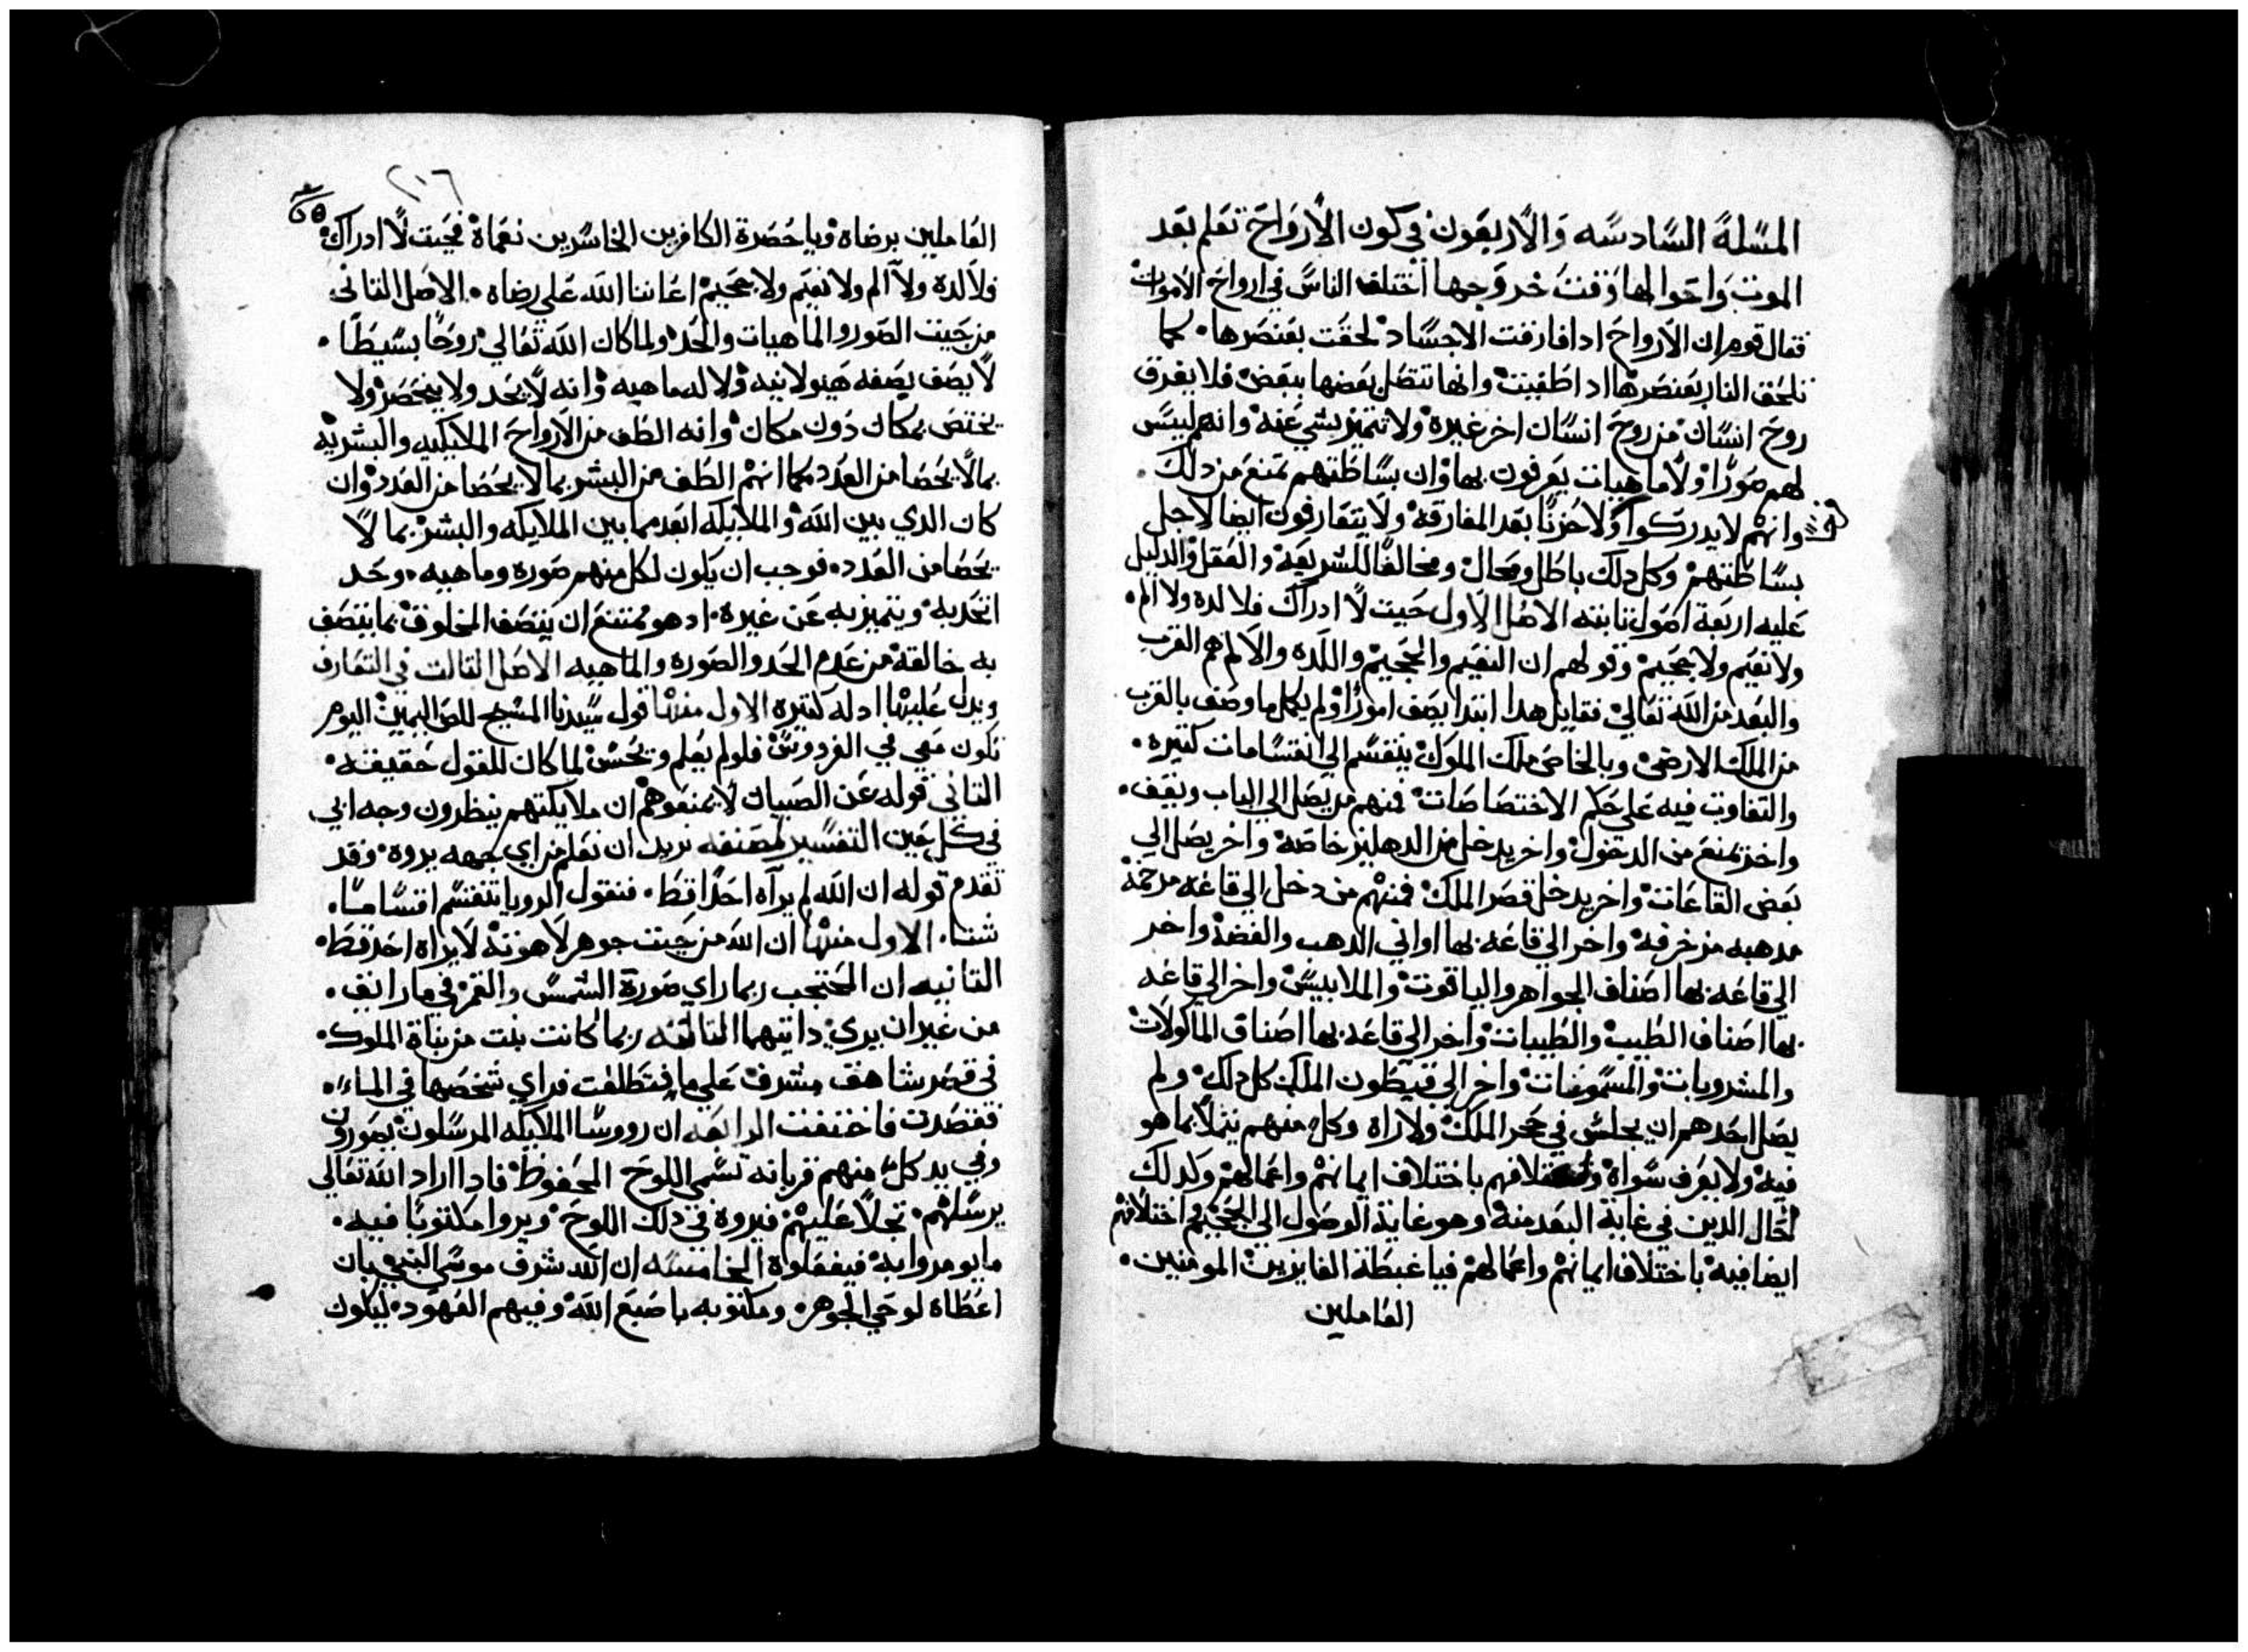 المسلة السادسه والاربعون في كون الارواح تعلم بعد
الموت واحوالها وقت خروجها اختلف الناس في ارواح الاموات
فقال قوم ان الارواح ادا فارقت الاجساد لحقت بعنصرها كما
تلحق النار بعنصرها ادا طفيت وانها تتصل بعضها ببعض فلا يفرق
روح انسان من روح انسان اخر غيره ولا تتميز بشي عنه وانهم ليس
لهم صورا ولا ماهيات يعرفون بها وان بساطتهم تمنع من دلك
وانهم لا يدركوا ولا حزنا بعد المفارقه ولا يتعارفون ايضا لاجل
بساطتهم وكل دلك باطل ومحال ومخالفا للشريعه والعقل والدليل
عليه اربعة اصول تابته الاصل الاول حيت لا ادراك فلا لده ولا الم
ولا نعيم ولا جحيم وقولهم ان النعيم والجحيم واللده والالم هم القرب
والبعد من الله تعالي فقايل هدا ابتدا يصف امورا ولم يكمل ما وصف بالقرب
من الملك الارضي وبالخاص ملك الملوك ينقسم الي انقسامات كتيره
والتفاوت فيه علي حكم الاختصاصات فمنهم من يصل الي الباب ويقف
واخر يمنع من الدخول واخر يدخل من الدهليز خاصة واخر يصل الي
بعض القاعات واخر يدخل قصر الملك فمنهم من دخل الي قاعه مرخمة
مدهبه مزخرفه واخر الي قاعه بها اواني الدهب والفضة واخر
الي قاعه بها اصناف الجواهر والياقوت والملابيس واخر الي قاعه
بها اصناف الطيب والطيبات واخر الي قاعه بها اصناف الماكولات
والمشروبات والمسموعات واخر الي قيطون الملك كل دلك ولم
يصل احدهم ان يجلس في حجر الملك ولا راه وكل منهم يتملا بما هو
فيه ولا يعرف سواه باختلاف ايمانهم واعمالهم وكدلك
الحال الدين في غاية البعد منه وهو غاية الوصول الي الجحيم واختلافهم
ايضا فيه باختلاف ايمانهم واعمالهم فيا غبطة الفايزين المومنين
العاملين
٢١٦
العاملين برضاه ويا حصرة الكافرين الخاسرين نعماه فحيت لا ادراك
فلا لده ولا الم ولا نعيم ولا جحيم اعاننا الله علي رضاه الاصل التاني
من حيت الصور والماهيات والحد ولما كان الله تعالي روحا بسيطا
لا يصف بصفه هيولانيه ولا له ماهيه وانه لا يحد ولا ينحصر ولا
يختص بمكان دون مكان وانه الطف من الارواح الملايكيه والبشريه
بما لا يحصا من العدد كما انهم الطف من البشر بما لا يحصا من العدد وان
كان الدي بين الله والملايكه ابعد مما بين الملايكه والبشر بما لا
يحصا من العدد فوجب ان يكون لكل منهم صوره وماهيه وحد
اتحد به ويتميز به عن غيره اد هو ممتنع ان يتصف المخلوق بما يتصف
به خالقه من عدم الحد والصوره والماهيه الاصل التالت في التعارف
ويدل عليها ادله كتيره الاول منها قول سيدنا المسيح للص اليمين اليوم
تكون معي في الفردوس فلولم يعلم ويحس لما كان للقول حقيقه
التاني قوله عن الصبيان لا يمنعوهم ان ملايكتهم ينظرون وجه ابي
في كل حين التفسير لمصنفه نريد ان نعلم من اي جهه يروه وقد
تقدم قوله ان الله لم يراه احدا قط فنقول الرويا تنقسم اقساما
شتا الاول منها ان الله من حيت جوهر لاهوته لا يراه احد قط
التانيه ان المحتجب ربما راي صورة الشمس والقمر في ما رانق
من غير ان يري داتيهما التالته ربما كانت بنت من بناة الملوك
في قصر شاهق مشرف علي ما فتطلعت فراي شخصها في الماء
فقصدت فاختفت الرابعه ان رووسا الملايكه المرسلون يصورون
وفي يد كل منهم قربانه تسمي اللوح المحفوظ فادا اراد الله تعالي
يرسلهم تجلا عليهم فيروه في دلك اللوح ويروا مكتوبا فيه
ما يومروا به فيفعلوه الخامسه ان الله شرف موسي النبي بان
اعطاه لوحي الجوهر ومكتوبه باصبع الله وفيهم العهود ليكون